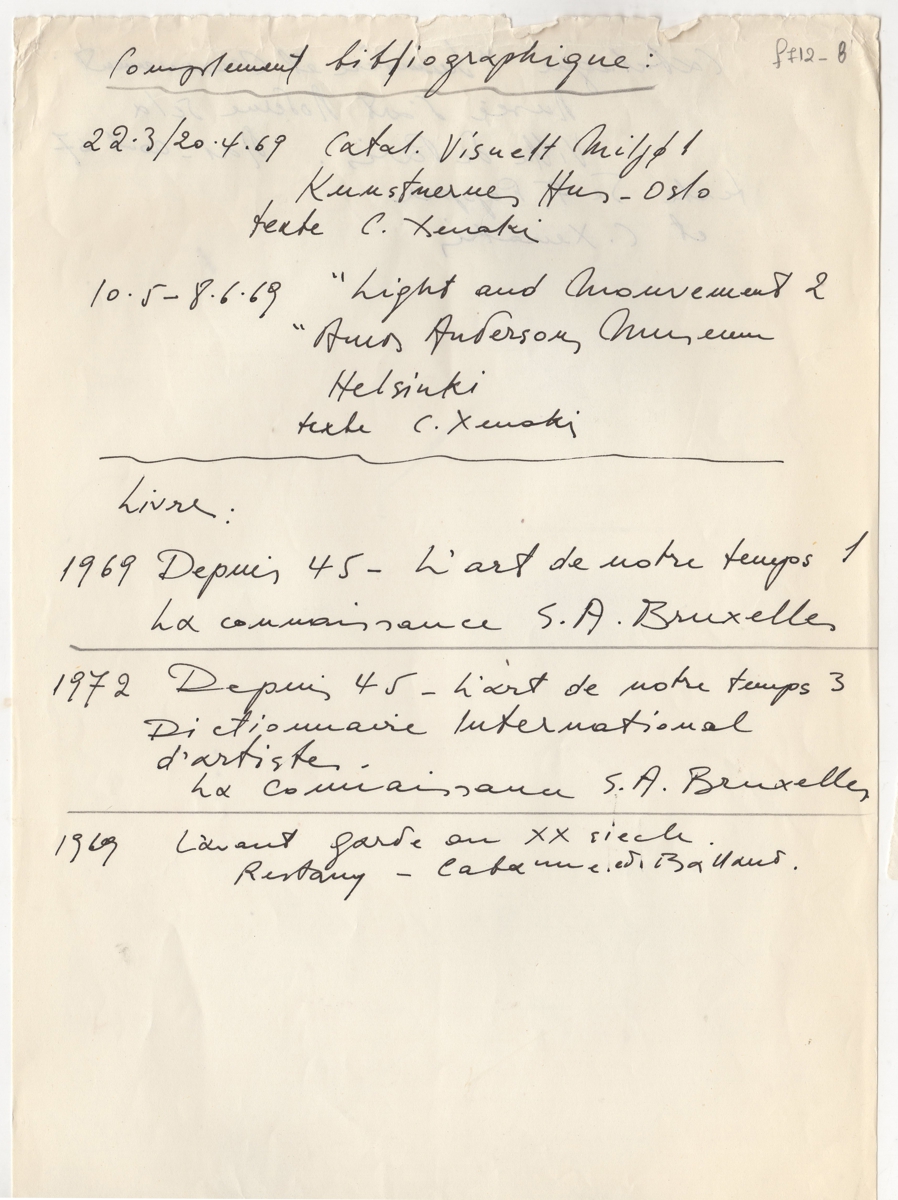 Complement bibliographique :
22.3/20.4.69 Catal. Visuelt Miljø 1
Kunstnernes Hus - Oslo
texte C. Xenakis
10.5 - 8.6.69 "Light and Mouvement 2
"Amos Andersons Museum
Helsinki
texte C. Xenakis
Livre :
1969 Depuis 45 - L'art de notre temps 1
La connaissance S.A. Bruxelles
1972 Depuis 45 - L'art de notre temps 3
Dictionnaire International
d'artistes.
La connaissance S.A. Bruxelles
1969 L'avant garde au XX siecle.
Restany - Cabanne. ed. Balland.